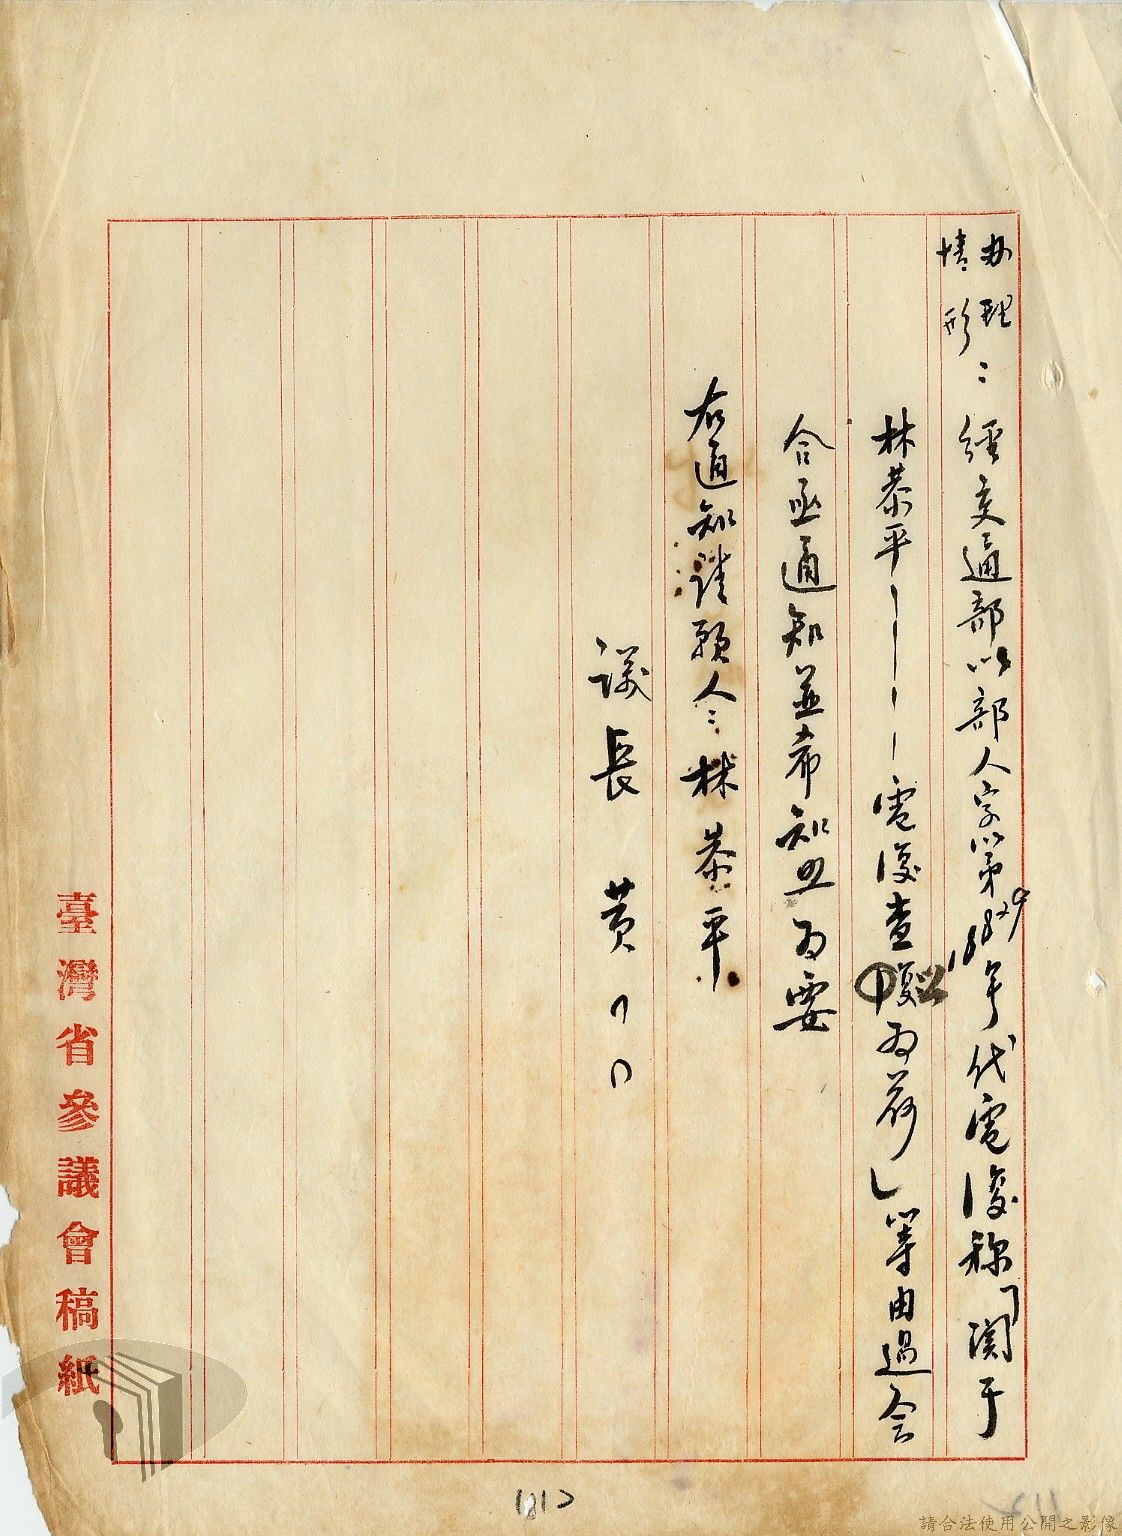 办理情形：經交通部以部人字第18829年代電復称「関于
林恭平————電復查以復為荷」等由過会
合亟通知並希知照為要
右通知請願人：林恭平
議長 黃〇〇
臺灣省參議會稿紙
請合法使用公開之影像